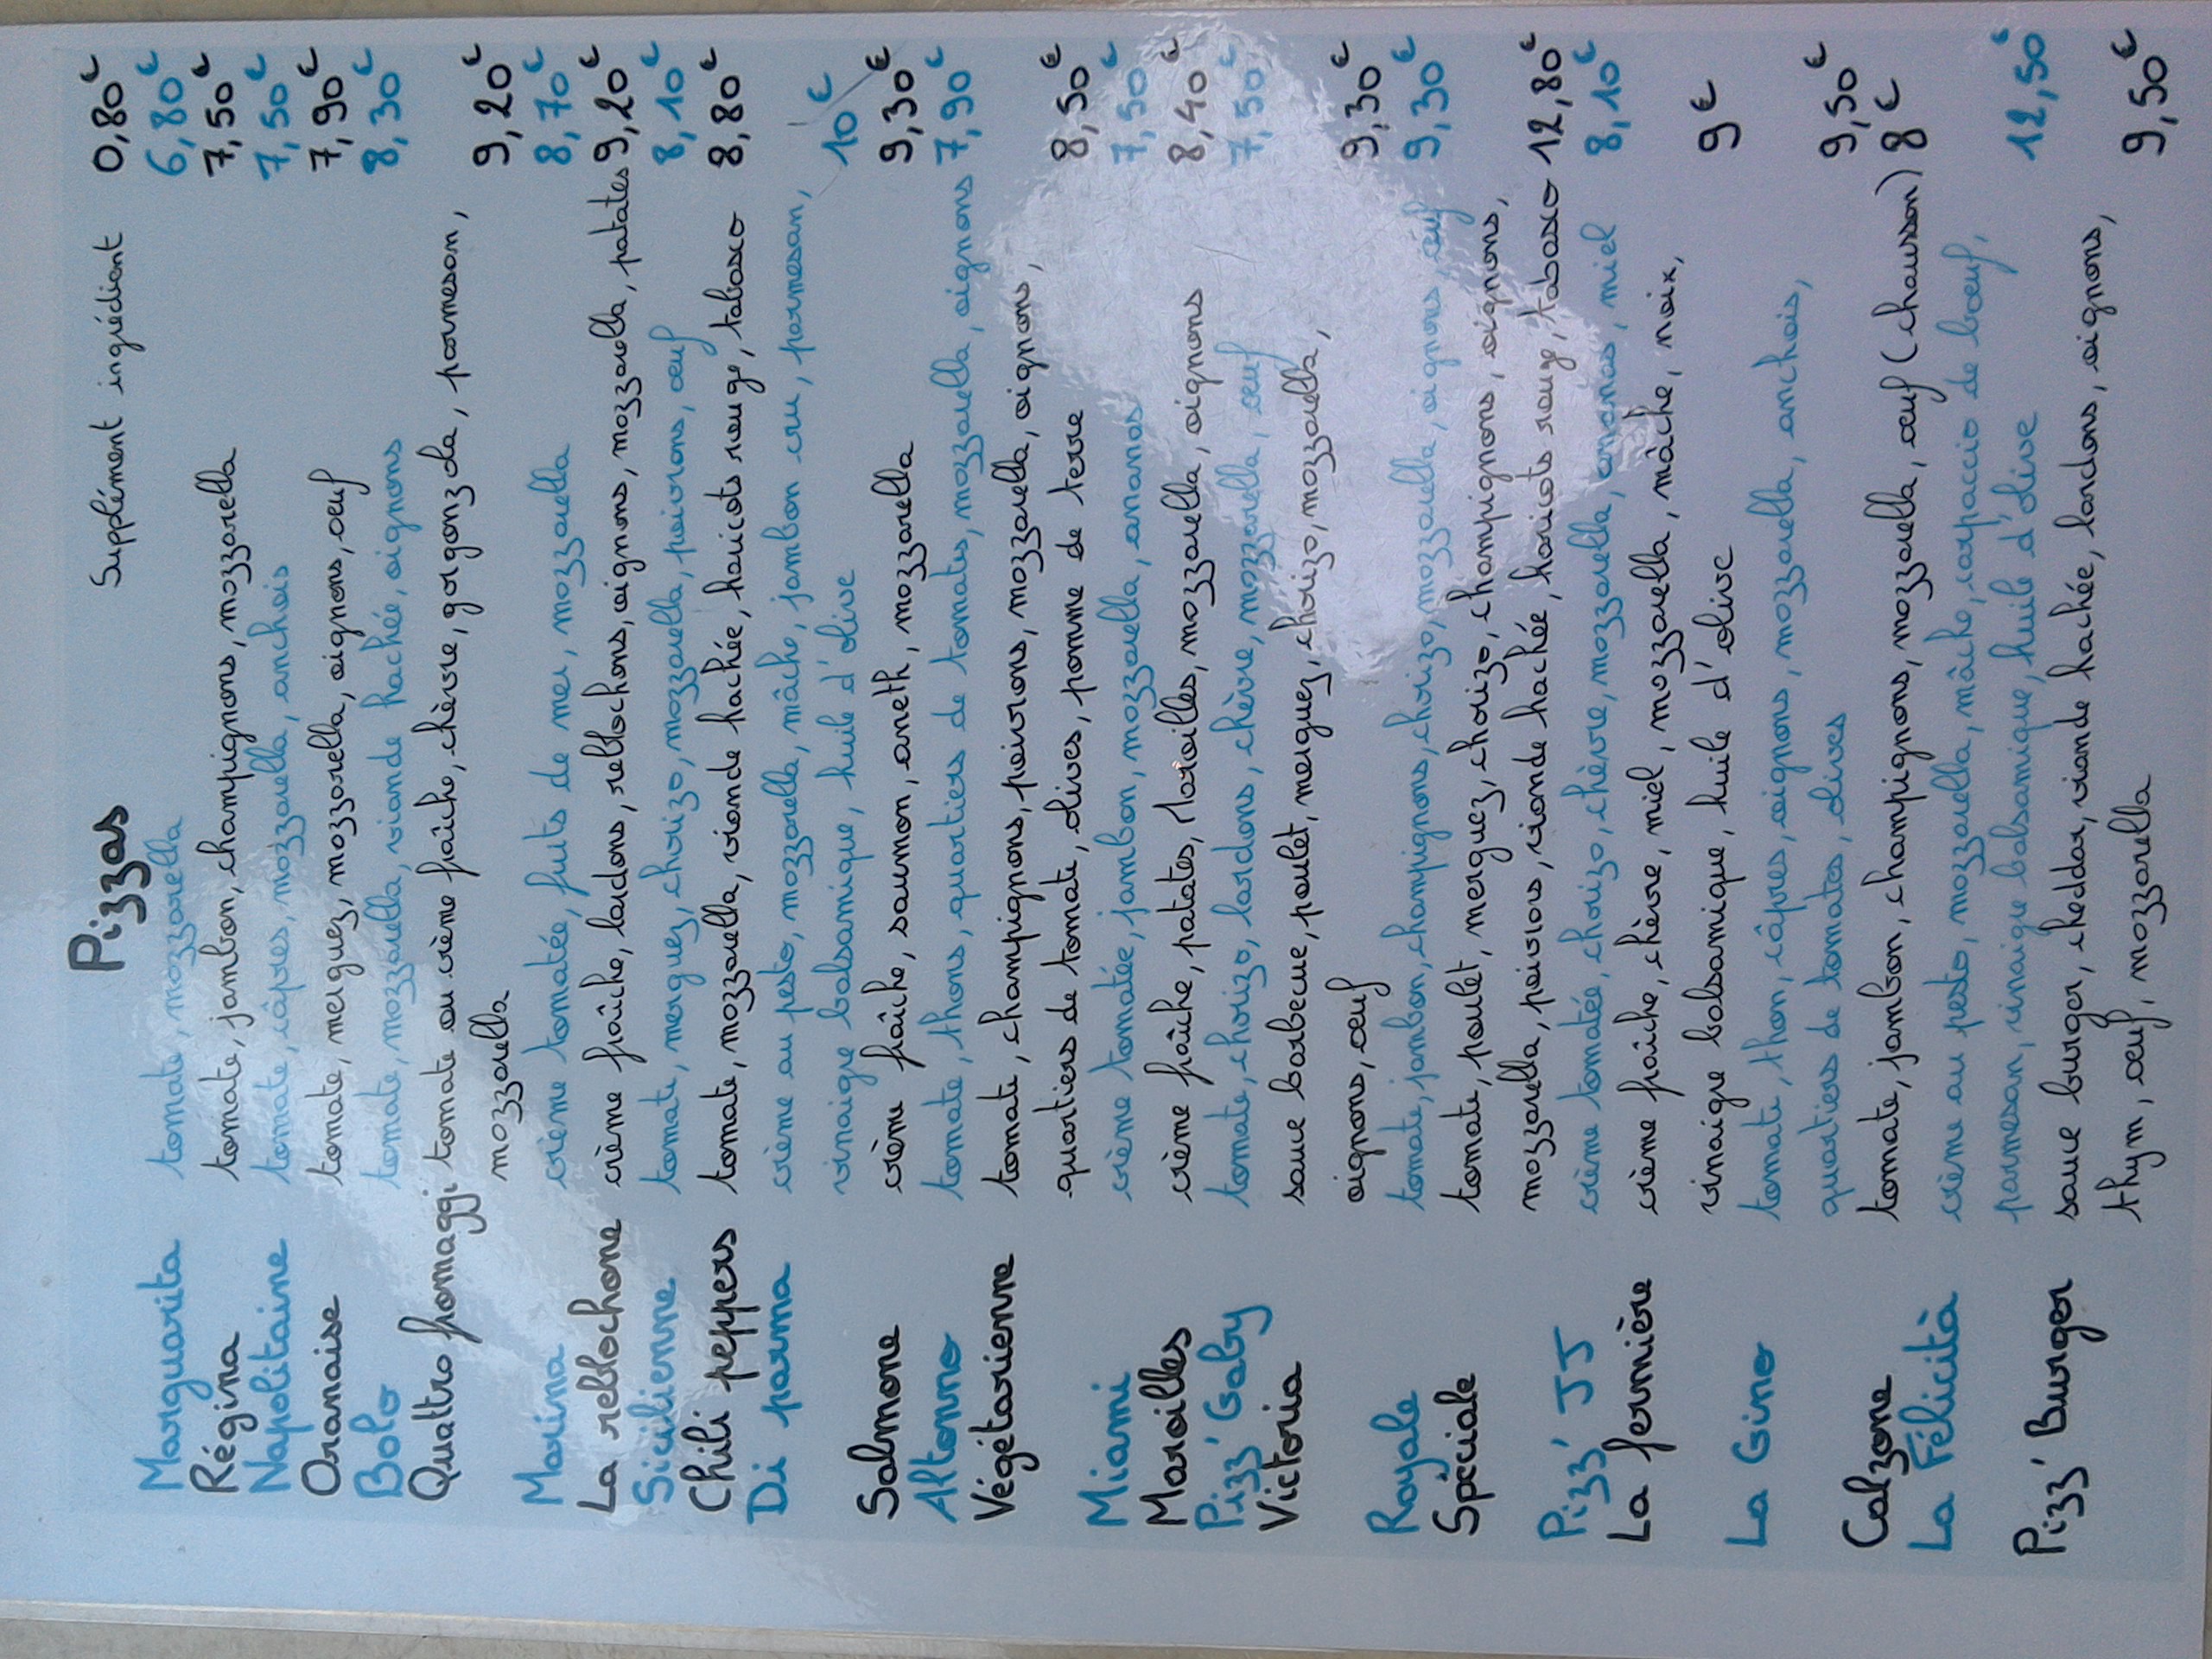 Pizzas
Supplément ingrédient 0,80€
Marguarita tomate, mozzarella 6,80€
Régina tomate, jambon, champignons, mozzarella 7,50€
Napolitaine tomate, câpres, mozzarella, anchois 7,50€
Oranaise tomate, merguez, mozzarella, oignons, oeuf 7,90€
Bolo tomate, mozzarella, viande hachée, oignons 8,30€
Quattro fromaggi tomate ou crème fraîche, chèvre, gorgonzola, parmesan,
mozzarella 9,20€
Marina crème tomatée, fruits de mer, mozzarella 8,70€
La reblochone crème fraîche, lardons, reblochons, oignons, mozzarella, patates 9,20€
Sicilienne tomate, merguez, chorizo, mozzarella, poivrons, oeuf 8,10€
Chili peppers tomate, mozzarella, viande hachée, haricots rouge, tabasco 8,80€
Di parma crème au pesto, mozzarella, mâche, jambon cru, parmesan,
vinaigre balsamique, huile d'olive 10€
Salmone crème fraîche, saumon, aneth, mozzarella 9,30€
Altonno tomate, thons, quartiers de tomates, mozzarella, oignons 7,90€
Végétarienne tomate, champignons, poivrons, mozzarella, oignons,
quartiers de tomate, olives, pomme de terre 8,50€
Miami crème tomatée, jambon, mozzarella, ananas 7,50€
Maroilles crème fraîche, patates, Maroilles, mozzarella, oignons 8,40€
Pizz' Gaby tomate, chorizo, lardons, chèvre, mozzarella, oeuf 7,50€
Victoria sauce barbecue, poulet, merguez, chorizo, mozzarella,
oignons, oeuf 9,30€
Royale tomate, jambon, champignons, chorizo, mozzarella, oignons, oeuf 9,30€
Spéciale tomate, poulet, merguez, chorizo, champignons, oignons,
mozzarella, poivrons, viande hachée, haricots rouge, tabasco 12,80€
Pizz' JJ crème tomatée, chorizo, chèvre, mozzarella, ananas, miel 8,10€
La fermière crème fraîche, chèvre, miel, mozzarella, mâche, noix,
vinaigre balsamique, huile d'olive 9€
La Gino tomate, thon, câpres, oignons, mozzarella, anchois,
quartiers de tomates, olives 9,50€
Calzone tomate, jambon, champignons, mozzarella, oeuf (chausson) 8€
La Félicità crème au pesto, mozzarella, mâche, carpaccio de boeuf,
parmesan, vinaigre balsamique, huile d'olive 12,50€
Pizz' Burger sauce burger, cheddar, viande hachée, lardons, oignons,
thym, oeuf, mozzarella 9,50€